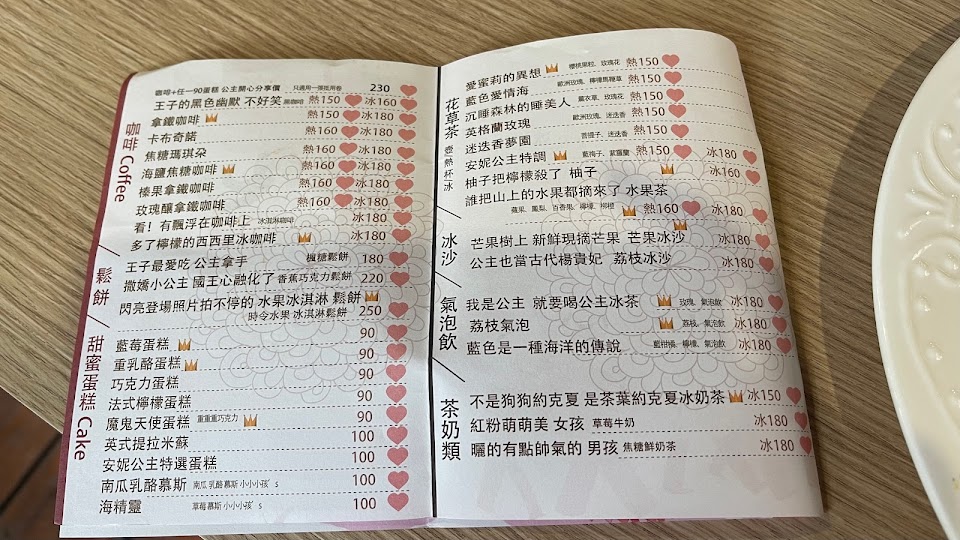 咖啡 Coffee
咖啡+任一90蛋糕 公主開心分享價 只適用一張抵用卷 230
王子的黑色幽默 不好笑 黑咖啡 熱150 冰160
拿鐵咖啡 熱150 冰180
卡布奇諾 熱160 冰180
焦糖瑪琪朶 熱160 冰180
海鹽焦糖咖啡 熱160 冰180
榛果拿鐵咖啡 熱160 冰180
玫瑰釀拿鐵咖啡 熱160 冰180
看！有飄浮在咖啡上 冰淇淋咖啡 冰180
多了檸檬的西西里冰咖啡 冰180
鬆餅
王子最愛吃 公主拿手 楓糖鬆餅 180
撒嬌小公主 國王心融化了 香蕉巧克力鬆餅 220
閃亮登場照片拍不停的 水果冰淇淋 鬆餅
時令水果 冰淇淋鬆餅 250
甜蜜蛋糕 Cake
藍莓蛋糕 90
重乳酪蛋糕 90
巧克力蛋糕 90
法式檸檬蛋糕 90
魔鬼天使蛋糕 重重重巧克力 90
英式提拉米蘇 100
安妮公主特選蛋糕 100
南瓜乳酪慕斯 南瓜乳酪慕斯 小小小孩's 100
海精靈 草莓慕斯 小小小孩's 100
花草茶 壺熱 杯冰
愛蜜莉的異想 櫻桃果粒、玫瑰花 熱150
藍色愛情海 歐洲玫瑰、檸檬馬鞭草 熱150
沉睡森林的睡美人 薰衣草、玫瑰花 熱150
英格蘭玫瑰 歐洲玫瑰、迷迭香 熱150
迷迭香夢園 苜蓿子、迷迭香 熱150
安妮公主特調 藍梅子、紫羅蘭 熱150 冰180
柚子把檸檬殺了 柚子 冰160
誰把山上的水果都摘來了 水果茶
蘋果、鳳梨、百香果、檸檬、柳橙 熱160 冰180
冰沙
芒果樹上 新鮮現摘芒果 芒果冰沙 冰180
公主也當古代楊貴妃 荔枝冰沙 冰180
氣泡飲
我是公主 就要喝公主冰茶 玫瑰、氣泡飲 冰180
荔枝氣泡 荔枝、氣泡飲 冰180
藍色是一種海洋的傳說 藍柑橘、檸檬、氣泡飲 冰180
茶奶類
不是狗狗約克夏 是茶葉約克夏冰奶茶 冰150
紅粉萌萌美 女孩 草莓牛奶 冰180
曬的有點帥氣的 男孩 焦糖鮮奶茶 冰180